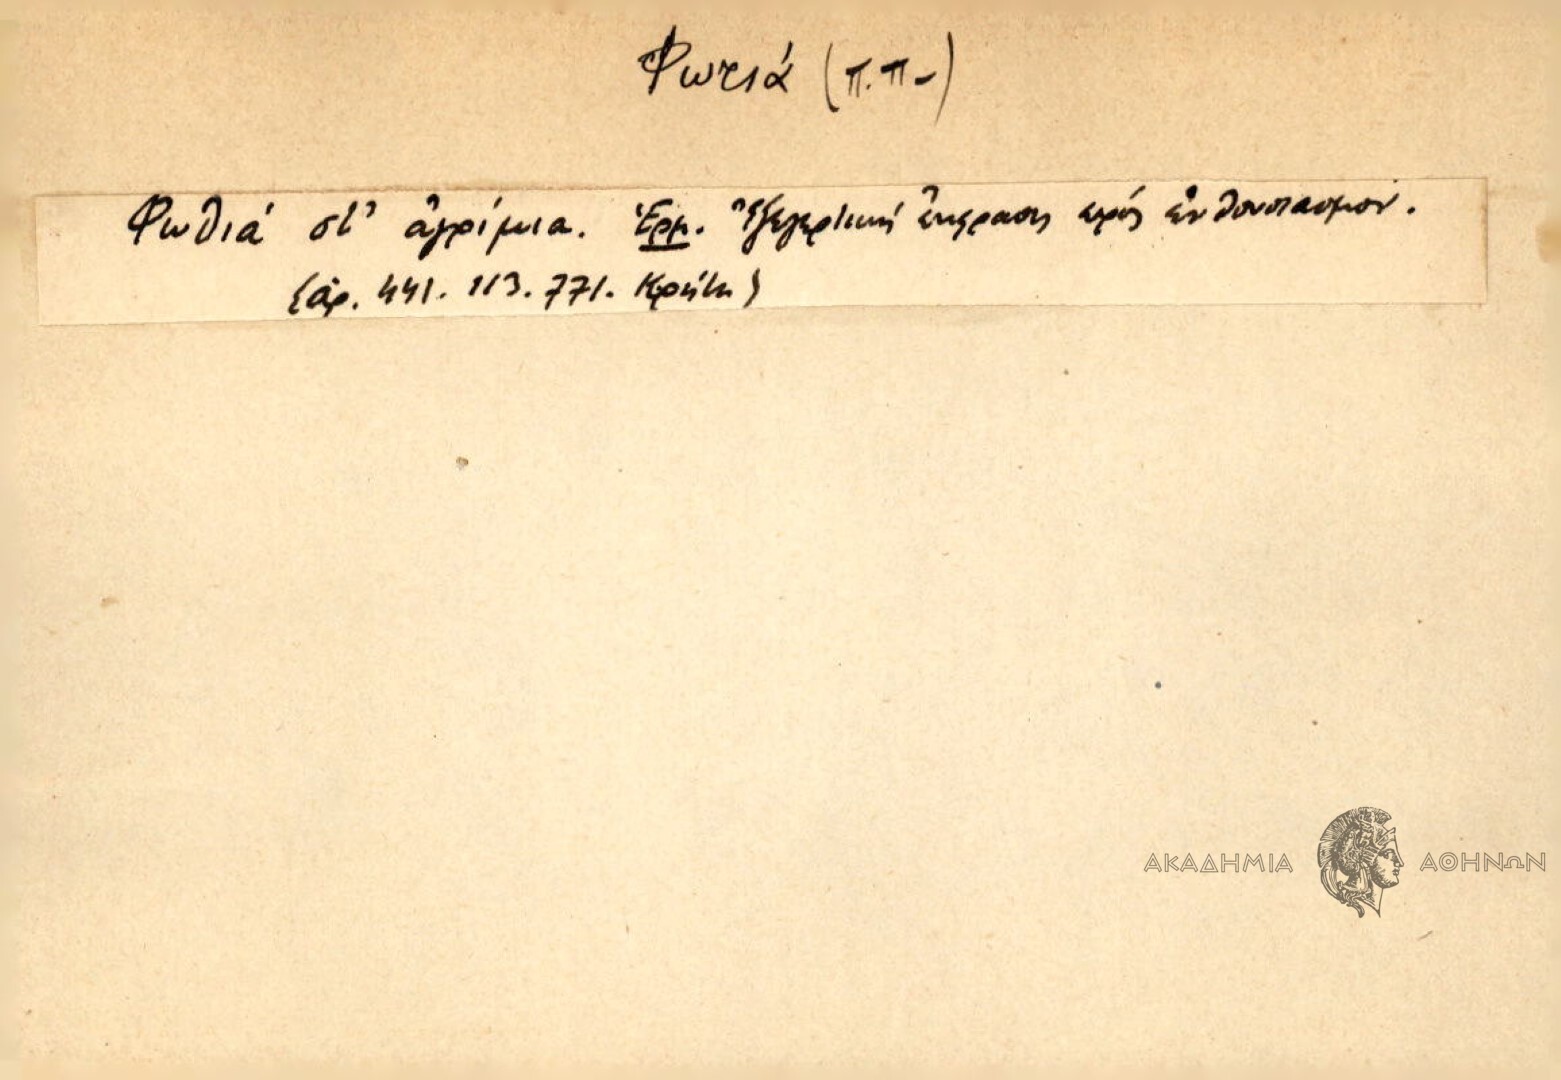 Φωτιά (π.π-)
Φωθιά στ' ἀγρίμια. Ἑρμ. Ἐξεγερτική ἔκφρασις πρός ἐνθουσιασμόν.
(ἀρ. 441. 113. 771. Κρήτη)
ΑΚΑΔΗΜΙΑ ΑΘΗΝΩΝ